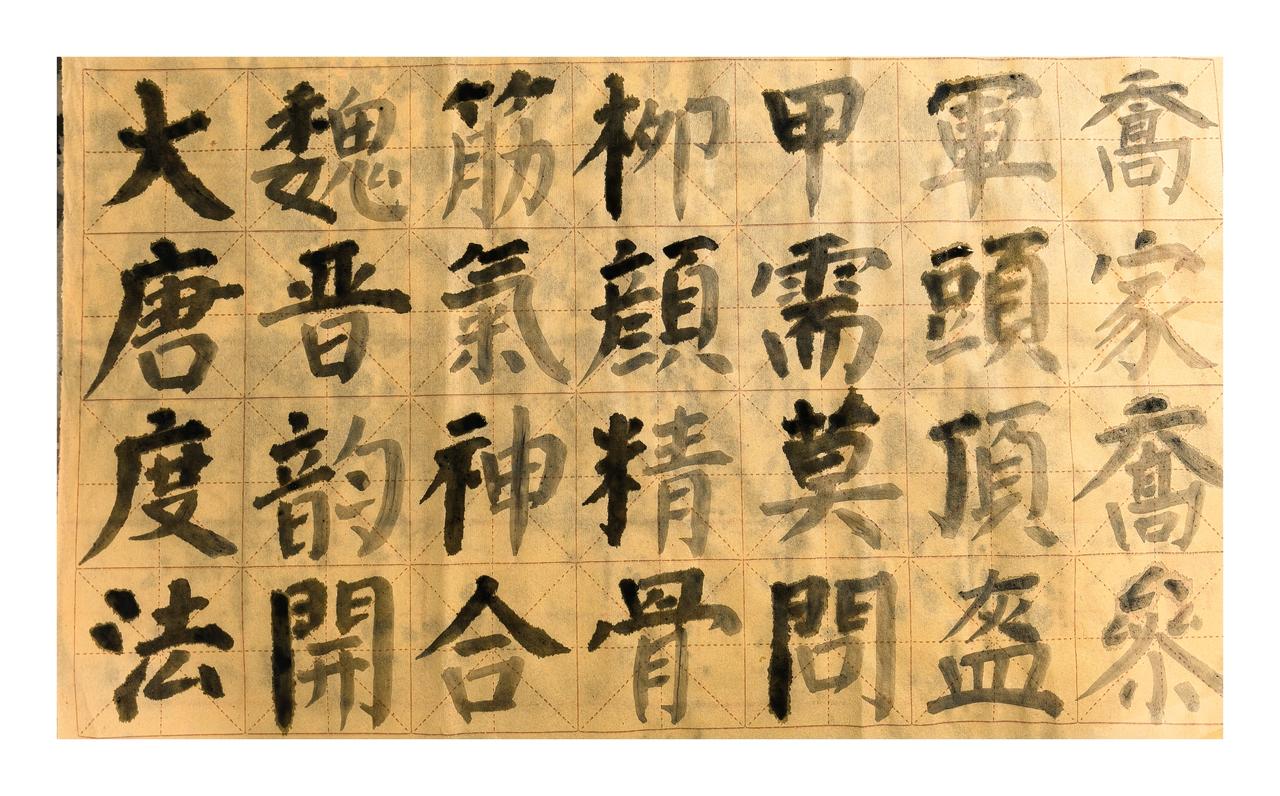 喬家喬叅
軍頭頂盔
甲需莫問
柳顔精骨
筋氣神合
魏晋韵開
大唐度法